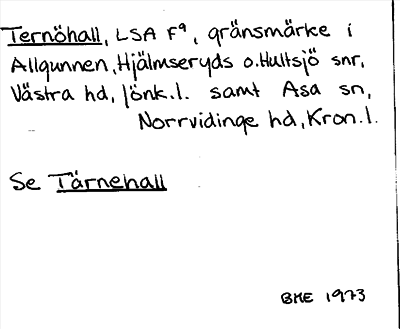 Ternöhall, LSA F⁹, gränsmärke i
Allgunnen, Hjälmseryds o. Hultsjö snr,
Västra hd, Jönk.l. samt Asa sn,
Norrvidinge hd, Kron.l.
Se Tärnehall
BME 1973